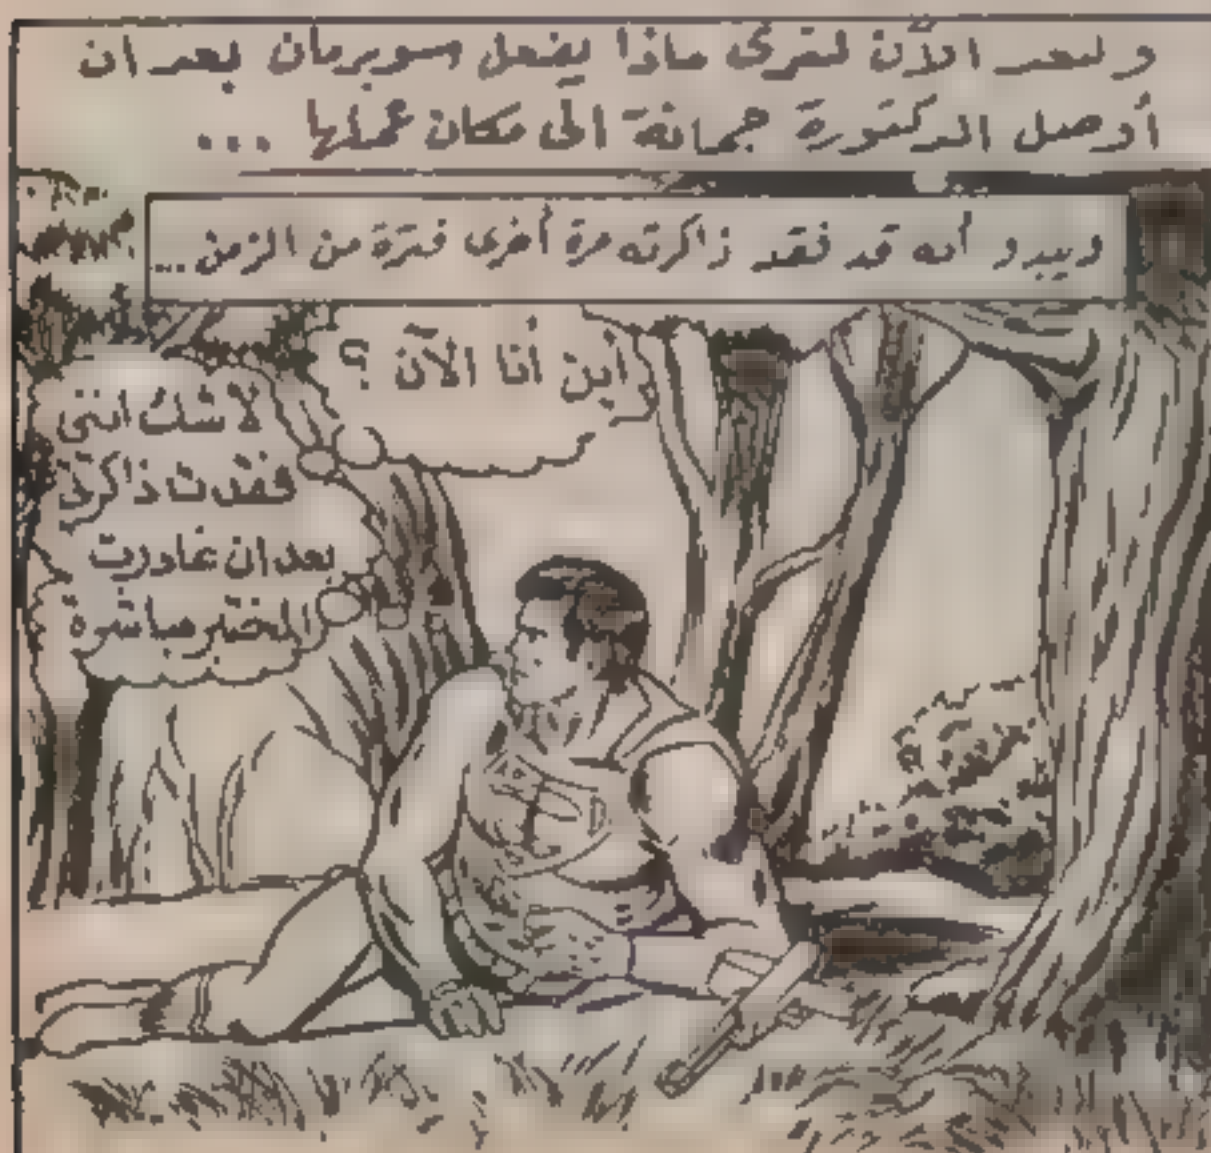 ولنعد الآن لنرى ماذا يفعل سوبرمان بعد ان
أوصل الدكتورة جمانة الى مكان عملها ...
ويبدو أنه قد فقد ذاكرته مرة أخرى فترة من الزمن...
أين أنا الآن ؟
لا شك انني
فقدت ذاكرتي
بعد ان غادرت
المختبر مباشرة